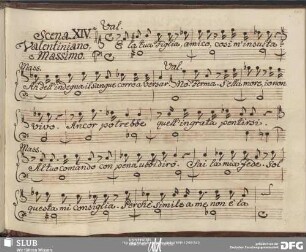 Scena XIV
Valentiniano,
e Massimo.
Val.
E la tua figlia, amico, così m'insulta?
Mass.
Val.
Ah dell'indegna il sangue corro a versar. No. Ferma. S'ella more, io non
vivo. Ancor potrebbe quell'ingrata pentirsi.
Mass.
Al tuo comando con pena ubbidirò. Sai la mia fede. Sol
questa mi consiglia. Perchè simile a me non è la
SLUB
Wir führen Wissen.
DFG